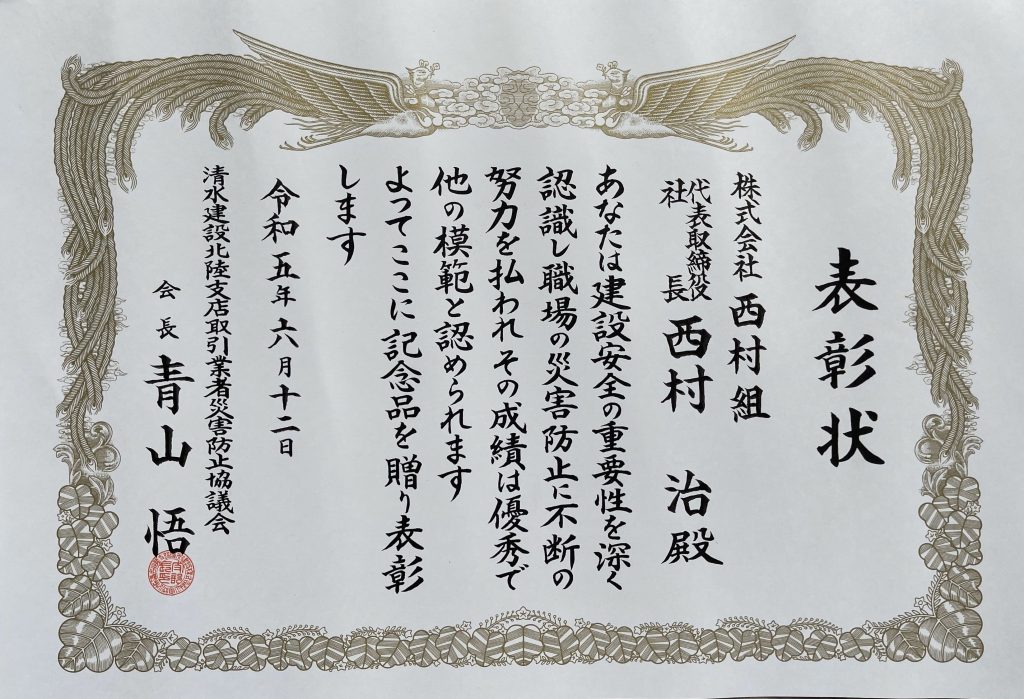 表彰状
株式会社 西村組
代表取締役
社長 西村 治殿
あなたは建設安全の重要性を深く
認識し職場の災害防止に不断の
努力を払われその成績は優秀で
他の模範と認められます
よってここに記念品を贈り表彰
します
令和五年六月十二日
清水建設北陸支店取引業者災害防止協議会
会長 青山 悟